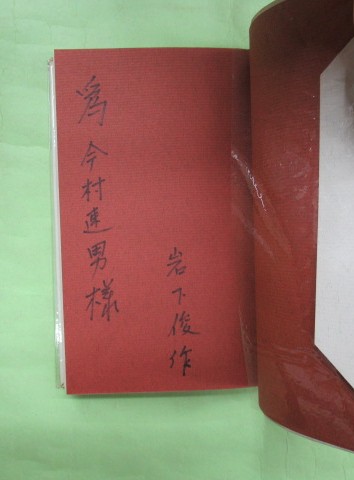 爲今村達男様
岩下俊作